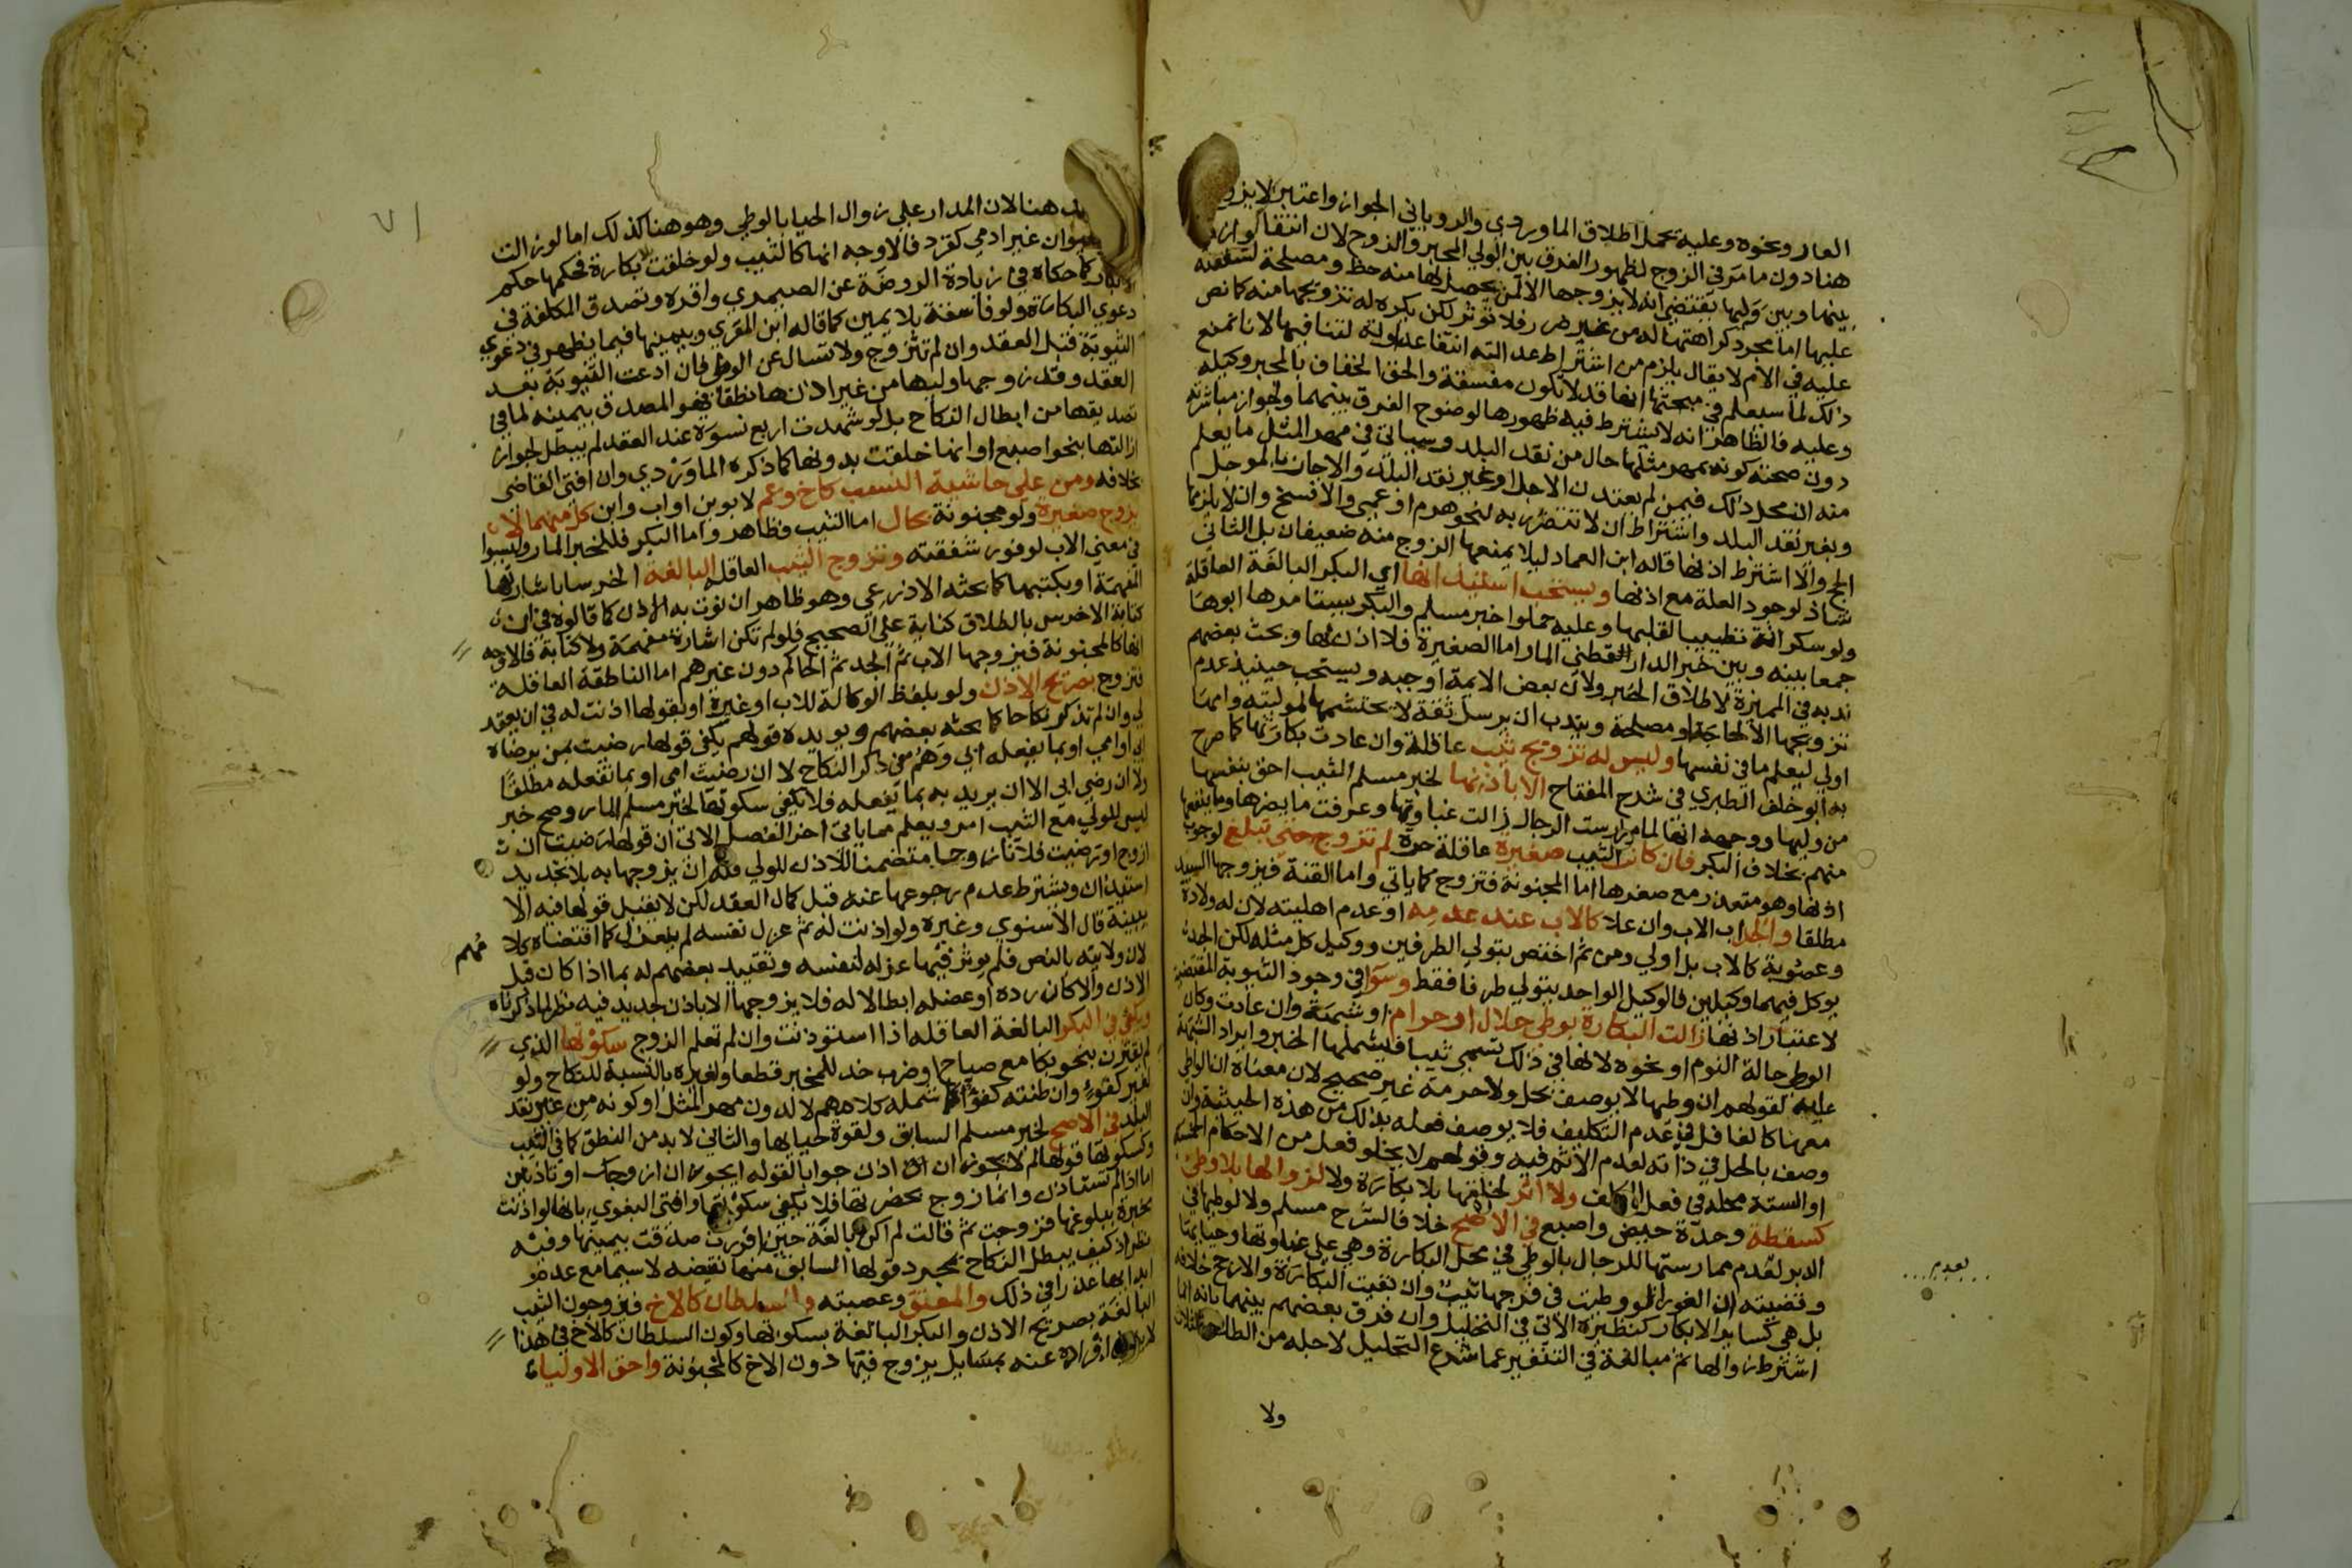 العار ونحوه وعليه يحمل اطلاق الماوردي والروياني الجواز واعتبر
هنا دون ما مر في الزوج لظهور الفرق بين الولي المجبر والزوج لان انتفا
بينها وبين وليها يقتضي انه لا يزوجها الا لمن يحصل لها منه حظ ومصلحة لشفقته
عليها اما مجرد كراهتها له من غير ضرر فلا تؤثر لكن يكره له تزويجها منه كما نص
عليه في الام لا يقال يلزم من اشتراط عدالته انتفا عداوته لتنافيهما لانا نمنع
ذلك لما سيعلم في مبحثها انها قد لا تكون مفسقة والحق الخفاف بالمجبر وكيله
وعليه فالظاهر انه لا يشترط فيه ظهورها لوضوح الفرق بينهما ولجواز مباشرته
دون صحته كونه بمهر مثلها حال من نقد البلد وسياتي في مهر المثل ما يعلم
منه ان محل ذلك فيمن لم يعتدن الاجل او غير نقد البلد والا جاز بالموجل
وبغير نقد البلد واشتراط ان لا تتضرر به لنحو هرم او عمي والا فسخ وان لا يلزمها
الحج والا اشترط اذنها قاله ابن العماد ليلا يمنعها الزوج منه ضعيفان بل الثاني
شاذ لوجود العلة مع اذنها ويستحب استيذانها اي البكر البالغة العاقلة
ولو سكرانة تطييبا لقلبها وعليه حملوا خبر مسلم والبكر يستامرها ابوها
جمعا بينه وبين خبر الدارقطني المار اما الصغيرة فلا اذن لها وبحث بعضهم
ندبه في المميزة لاطلاق الخبر ولان بعض الايمة اوجبه ويستحب حينيذ عدم
تزويجها الا لحاجة او مصلحة ويندب ان يرسل ثقة لا تحتشمها لموليته وامها
اولي ليعلم ما في نفسها وليس له تزويج ثيب عاقلة وان عادت بكارتها كما صرح
به ابو خلف الطبري في شرح المفتاح الا باذنها لخبر مسلم الثيب احق بنفسها
من وليها ووجهه انها لما مارست الرجال زالت غباوتها وعرفت ما يضرها وما ينفعها
منهم بخلاف البكر فان كانت الثيب صغيرة عاقلة حرة لم تزوج حتي تبلغ لوجوب
اذنها وهو متعذر مع صغرها اما المجنونة فتزوج كما ياتي واما القنة فيزوجها السيد
مطلقا والجد اب الاب وان علا كالاب عند عدمه او عدم اهليته لان له ولادة
وعصوبة كالاب بل اولي ومن ثم اختص بتولي الطرفين ووكيل كل مثله لكن الجد
يوكل فيهما وكيلين فالوكيل الواحد يتولي طرفا فقط وسوا في وجود الثيوبة المقتضية
لاعتبار اذنها زالت البكارة بوطي حلال او حرام او شبهة وان عادت وكان
الوطي حالة النوم او نحوه لانها في ذلك تسمي ثيبا فيشملها الخبر وايراد الشبهة
عليه لقولهم ان وطيها لا يوصف بحل ولا حرمة غير صحيح لان معناه ان الواطي
معها كالغافل في عدم التكليف فلا يوصف فعله بذلك من هذه الحيثية وان
وصف بالحل في ذاته لعدم الاثم فيه وقولهم لا يخلو فعل من الاحكام الخمسة
او الستة محله في فعل المكلف ولا اثر لخلقها بلا بكارة ولا لزوالها بلا وطئ
كسقطة وحدة حيض واصبع في الاصح خلافا لشرح مسلم ولا لوطيها في
الدبر لعدم ممارستها للرجال بالوطي في محل البكارة وهي علي غباوتها وحيايها
وقضيته ان الغورا لو وطيت في فرجها ثيب وان بقيت البكارة والارجح خلافه
بل هي كساير الابكار كنظيره الاتي في التحليل وان فرق بعضهم بينهما بانه انما
اشترط زوالها ثم مبالغة في التنفير عما شرع التحليل لاجله من الطلاق الثلاث
ولا
تعدم
٧١
هنا لان المدار علي زوال الحيا بالوطي وهو هنا كذلك اما لو زالت
غير ادمي كقرد فالاوجه انها كالثيب ولو خلقت بلا بكارة فحكمها حكم
الابكار كما حكاه في زيادة الروضة عن الصيمري واقره وتصدق المكلفة في
دعوي البكارة ولو فاسقة بلا يمين كما قاله ابن المقري وبيمينها فيما يظهر في دعوي
الثيوبة قبل العقد وان لم تتزوج ولا تسال عن الوطي فان ادعت الثيوبة بعد
العقد وقد زوجها وليها من غير اذنها نطقا فهو المصدق بيمينه لما في
تصديقها من ابطال النكاح بل لو شهدت اربع نسوة عند العقد لم يبطل لجواز
ازالتها بنحو اصبع او انها خلقت بدونها كما ذكره الماوردي وان افتي القاضي
بخلافه ومن علي حاشية النسب كاخ وعم لابوين او اب وابن كل منهما لا
يزوج صغيرة ولو مجنونة بحال اما الثيب فظاهر واما البكر فللخبر المار وليسوا
في معني الاب لوفور شفقته وتزوج الثيب العاقلة البالغة الخرسا باشارتها
المفهمة او بكتبها كما بحثه الاذرعي وهو ظاهر ان نوت به الاذن كما قالوه في ان
كتابة الاخرس بالطلاق كناية علي الصحيح فلو لم تكن اشارة مفهمة ولا كتابة فالاوجه
انها كالمجنونة فيزوجها الاب ثم الجد ثم الحاكم دون غيرهم اما الناطقة العاقلة
تزوج بصريح الاذن ولو بلفظ الوكالة للاب او غيره او بقولها اذنت له في ان يعقد
لي وان لم تذكر نكاحا كما بحثه بعضهم ويويده قولهم يكفي قولها رضيت بمن يرضاه
ابي او امي او بما يفعله ابي وهم في ذكر النكاح لا ان رضيت امي او بما تفعله مطلقا
ولا ان رضي ابي الا ان يريد به بما يفعله فلا يكفي سكوتها لخبر مسلم المار وصح خبر
ليس للولي مع الثيب امر ويعلم مما ياتي اخر الفصل الاتي ان قولها رضيت ان
ازوج او رضيت فلانا زوجا متضمن للاذن للولي فله ان يزوجها به بلا تجديد
استيذان ويشترط عدم رجوعها عنه قبل كمال العقد لكن لا يقبل قولها فيه الا
ببينة قال الاسنوي وغيره ولو اذنت له ثم عزل نفسه لم ينعزل كما اقتضاه كلا
مهم
لان ولايته بالنص فلم يوثر فيها عزله لنفسه وتقييد بعضهم له بما اذا كان قبل
الاذن والا كان رده او عضله ابطالا له فلا يزوجها الا باذن جديد فيه نظر لما ذكرناه
ويكفي في البكر البالغة العاقله اذا استوذنت وان لم تعلم الزوج سكوتها الذي
لم يقترن بنحو بكا مع صياح او ضرب خد للمجبر قطعا ولغيره بالنسبة للنكاح ولو
لغير كفوء وان ظنته كفوا كما شمله كلامهم لا لدون مهر المثل او كونه من غير نقد
البلد في الاصح لخبر مسلم السابق ولقوة حيايها والثاني لا بد من النطق كما في الثيب
وكسكوتها قولها لم لا يجوز ان اذن جوابا لقوله ايجوز ان ازوجك او تاذنين
اما اذا لم تستاذن وانما زوج بحضرتها فلا يكفي سكوتها وافتي البغوي بانها لو اذنت
مخبرة ببلوغها فزوجت ثم قالت لم اكن بالغة حين اقررت صدقت بيمينها وفيه
نظر اذ كيف يبطل النكاح بمجرد قولها السابق منها نقيضه لا سيما مع عدم
ابدائها عذرا في ذلك والمعتق وعصبته والسلطان كالاخ فيزوجون الثيب
البالغة بصريح الاذن والبكر البالغة بسكوتها وكون السلطان كالاخ في هذا
انفراده عنه بمسايل يزوج فيها دون الاخ كالمجنونة واحق الاولياء